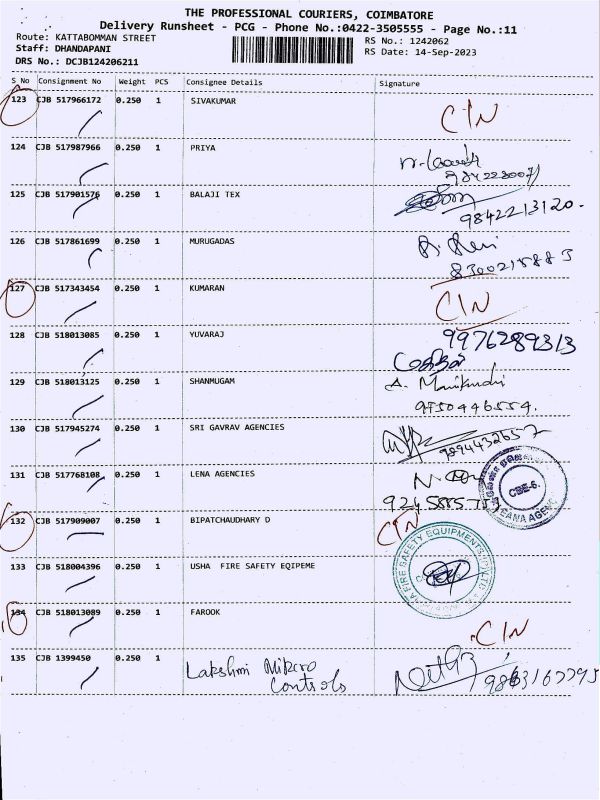 THE PROFESSIONAL COURIERS, COIMBATORE
Delivery Runsheet - PCG - Phone No.:0422-3505555 - Page No.:11
Route: KATTABOMMAN STREET
RS No.: 1242062
Staff: DHANDAPANI
RS Date: 14-Sep-2023
DRS No.: DCJB124206211
S No Consignment No Weight PCS Consignee Details Signature
123 CJB 517966172 0.250 1 SIVAKUMAR CIN
124 CJB 517987966 0.250 1 PRIYA
125 CJB 517901576 0.250 1 BALAJI TEX
9842213120.
126 CJB 517861699 0.250 1 MURUGADAS
127 CJB 517343454 0.250 1 KUMARAN CIN
128 CJB 518013085 0.250 1 YUVARAJ 9976289313
129 CJB 518013125 0.250 1 SHANMUGAM
9150446554.
130 CJB 517945274 0.250 1 SRI GAVRAV AGENCIES 9894432657
131 CJB 517768108 0.250 1 LENA AGENCIES
CBE-6.
132 CJB 517909007 0.250 1 BIPATCHAUDHARY D CIN
133 CJB 518004396 0.250 1 USHA FIRE SAFETY EQIPEME
FIRE SAFETY EQUIPMENTS
134 CJB 518013089 0.250 1 FAROOK CIN
135 CJB 1399450 0.250 1 Lakshmi Mikcro
Controls